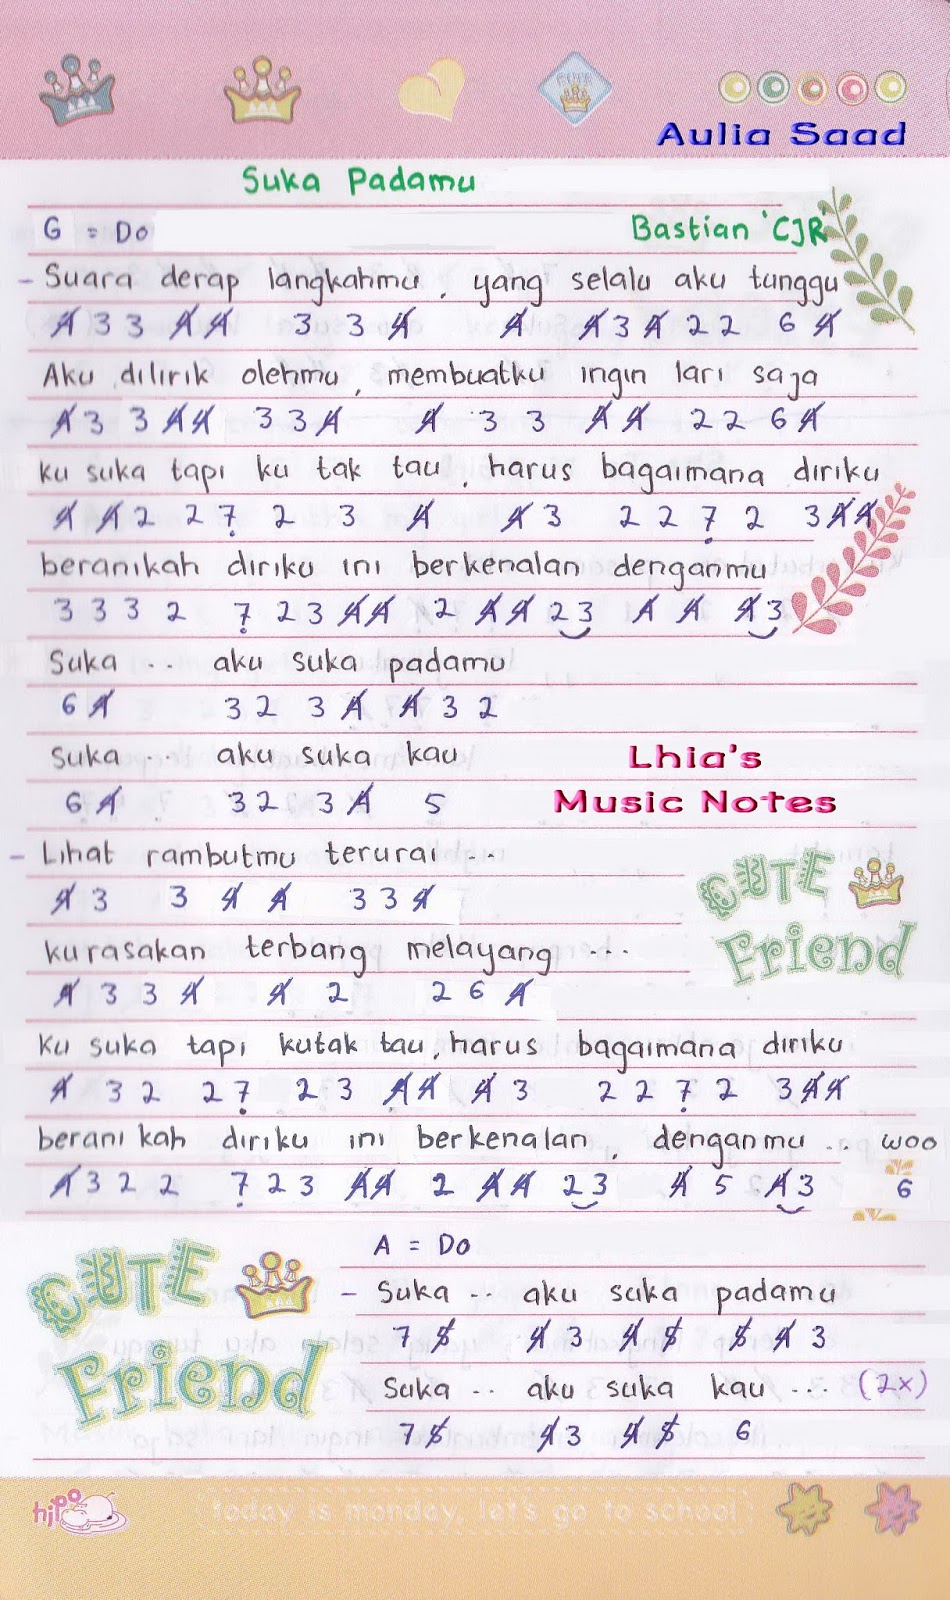 Aulia Saad
Suka Padamu
G = Do
Bastian 'CJR'
- Suara derap langkahmu, yang selalu aku tunggu
4̸ 3 3 4̸ 4̸ 3 3 4̸ 4̸ 4̸ 3 4̸ 2 2 6 4̸
Aku dilirik olehmu, membuatku ingin lari saja
4̸ 3 3 4̸ 4̸ 3 3 4̸ 4̸ 3 3 4̸ 4̸ 2 2 6 4̸
ku suka tapi ku tak tau, harus bagaimana diriku
4̸ 4̸ 2 2 7̣ 2 3 4̸ 4̸ 3 2 2 7̣ 2 3 4̸ 4̸
beranikah diriku ini berkenalan denganmu
3 3 3 2 7̣ 2 3 4̸ 4̸ 2 4̸ 4̸ 2 3 4̸ 4̸ 4̸ 3
Suka .. aku suka padamu
6 4̸ 3 2 3 4̸ 4̸ 3 2
Suka ... aku suka kau
6 4̸ 3 2 3 4̸ 5
Lhia's
Music Notes
- Lihat rambutmu terurai ..
4̸ 3 3 4̸ 4̸ 3 3 4̸
CUTE
Friend
kurasakan terbang melayang ....
4̸ 3 3 4̸ 4̸ 2 2 6 4̸
Ku suka tapi kutak tau, harus bagaimana diriku
4̸ 3 2 2 7̣ 2 3 4̸ 4̸ 4̸ 3 2 2 7̣ 2 3 4̸ 4̸
berani kah diriku ini berkenalan, denganmu .. woo
4̸ 3 2 2 7̣ 2 3 4̸ 4̸ 2 4̸ 4̸ 2 3 4̸ 5 4̸ 3 6
CUTE
Friend
A = Do
- Suka .. aku suka padamu
7 5̸ 4̸ 3 4̸ 5̸ 5̸ 4̸ 3
Suka .. aku suka kau ... (2x)
7 5̸ 4̸ 3 4̸ 5̸ 6
hipo
today is monday, let's go to school